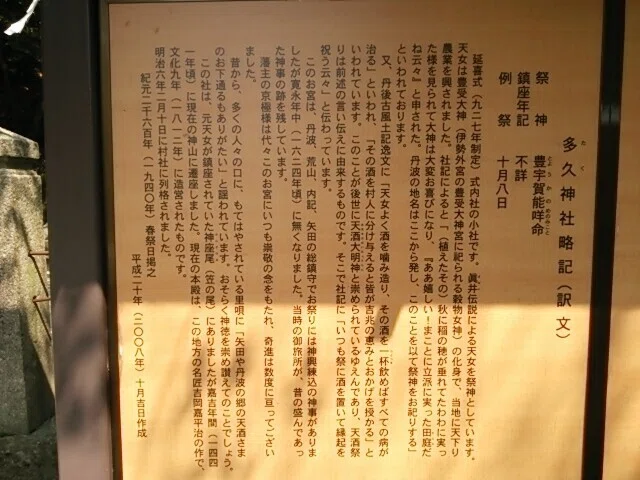 多久神社略記(訳文)
たく
祭神 豊宇賀能咩命
とようかのめのみこと
鎮座年記 不詳
例祭 十月八日
延喜式(九二七年制定)式内社の小社です。眞井伝説による天女を祭神としています。
天女は豊受大神(伊勢外宮の豊受大神宮に祀られる穀物女神)の化身で、当地に天下り
農業を興されました。社記によると「(植えたその)秋に稲の穂が垂れてたわわに実っ
た様を見られて大神は大変お喜びになり、『ああ嬉しい!まことに立派に実った田庭だ
ね云々』と申された。丹波の地名はここから発し、このことを以て祭神をお祀りする」
といわれております。
又、丹後古風土記逸文に「天女よく酒を噛み造り、その酒を一杯飲めばすべての病が
治る」といわれ、「その酒を村人に分け与えると皆が吉兆の恵みとおかげを授かる」と
いわれています。このことが後世に天酒大明神と崇められているゆえんであり、天酒祭
りは前述の言い伝えに由来するものです。そこで社記に「いつも祭に酒を置いて縁起を
祝う云々」と伝わっています。
このお宮は、丹波、荒山、内記、矢田の総鎮守でお祭りには神輿練込の神事がありま
したが寛永年中(一六二四年頃)に無くなりました。当時の御旅所が、昔の盛んであっ
た神事の跡を残しています。
藩主の京極様は代々このお宮にいつも崇敬の念をもたれ、寄進は数度に亘ってござい
ました。
昔から、多くの人々の口に、もてはやされている里唄に「矢田や丹波の郷の天酒さま
のお下通るもありがたい」と謡われています。おそらく神徳を崇め讃えてのことでしょう。
この社は、元天女が鎮座されていた神座尾(笠の尾)にありましたが嘉吉年間(一四四
一年頃)に現在の神山に遷座しました。現在の本殿は、この地方の名匠吉岡嘉平治の作で、
文化九年(一八一二年)に造営されたものです。
明治六年二月十日に村社に列格されました。
紀元二千六百年(一九四〇年)春祭日掲之
平成二十年(二〇〇八年)十月吉日作成